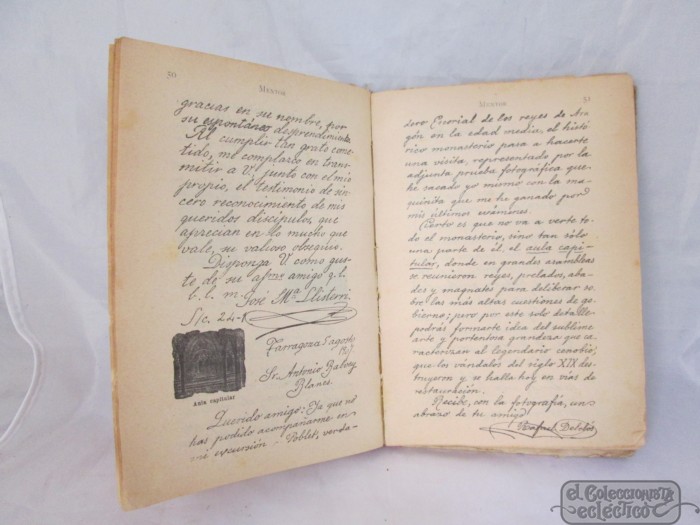 50
MENTOR
gracias en su nombre, por
su espontáneo desprendimiento.
Al cumplir tan grato come-
tido, me complazco en trans-
mitir a V. junto con el mio
propio, el testimonio de sin-
cero reconocimiento de mis
queridos discípulos, que
aprecian en lo mucho que
vale, su valioso obsequio.
Disponga V. como gus-
te de su afmo. amigo q. l.
b. l. m. José Mª Llisterri.
S/c. 24-
Aula capitular
Tarragona 5 agosto
Sr. Antonio
Blanes.
Querido amigo: Ya que no
has podido acompañarme en
mi excursión a Poblet, verda-
MENTOR
51
dero Escorial de los reyes de Ara-
gón en la edad media, el histó-
rico monasterio pasa a hacerte
una visita, representado por la
adjunta prueba fotográfica que
he sacado yo mismo con la ma-
quinita que me ha ganado por
mis últimos exámenes.
Cierto es que no va a verte to-
do el monasterio, sino tan sólo
una parte de él, el aula capi-
tular, donde en grandes asambleas
se reunieron reyes, prelados, aba-
des y magnates para deliberar so-
bre las más altas cuestiones de go-
bierno; pero por este solo detalle
podrás formarte idea del sublime
arte y portentosa grandeza que ca-
racterizan al legendario cenobio,
que los vándalos del siglo XIX des-
truyeron y se halla hoy en vías de
restauración.
Recibe, con la fotografía, un
abrazo de tu amigo
Rafael
el Coleccionista
ecléctico